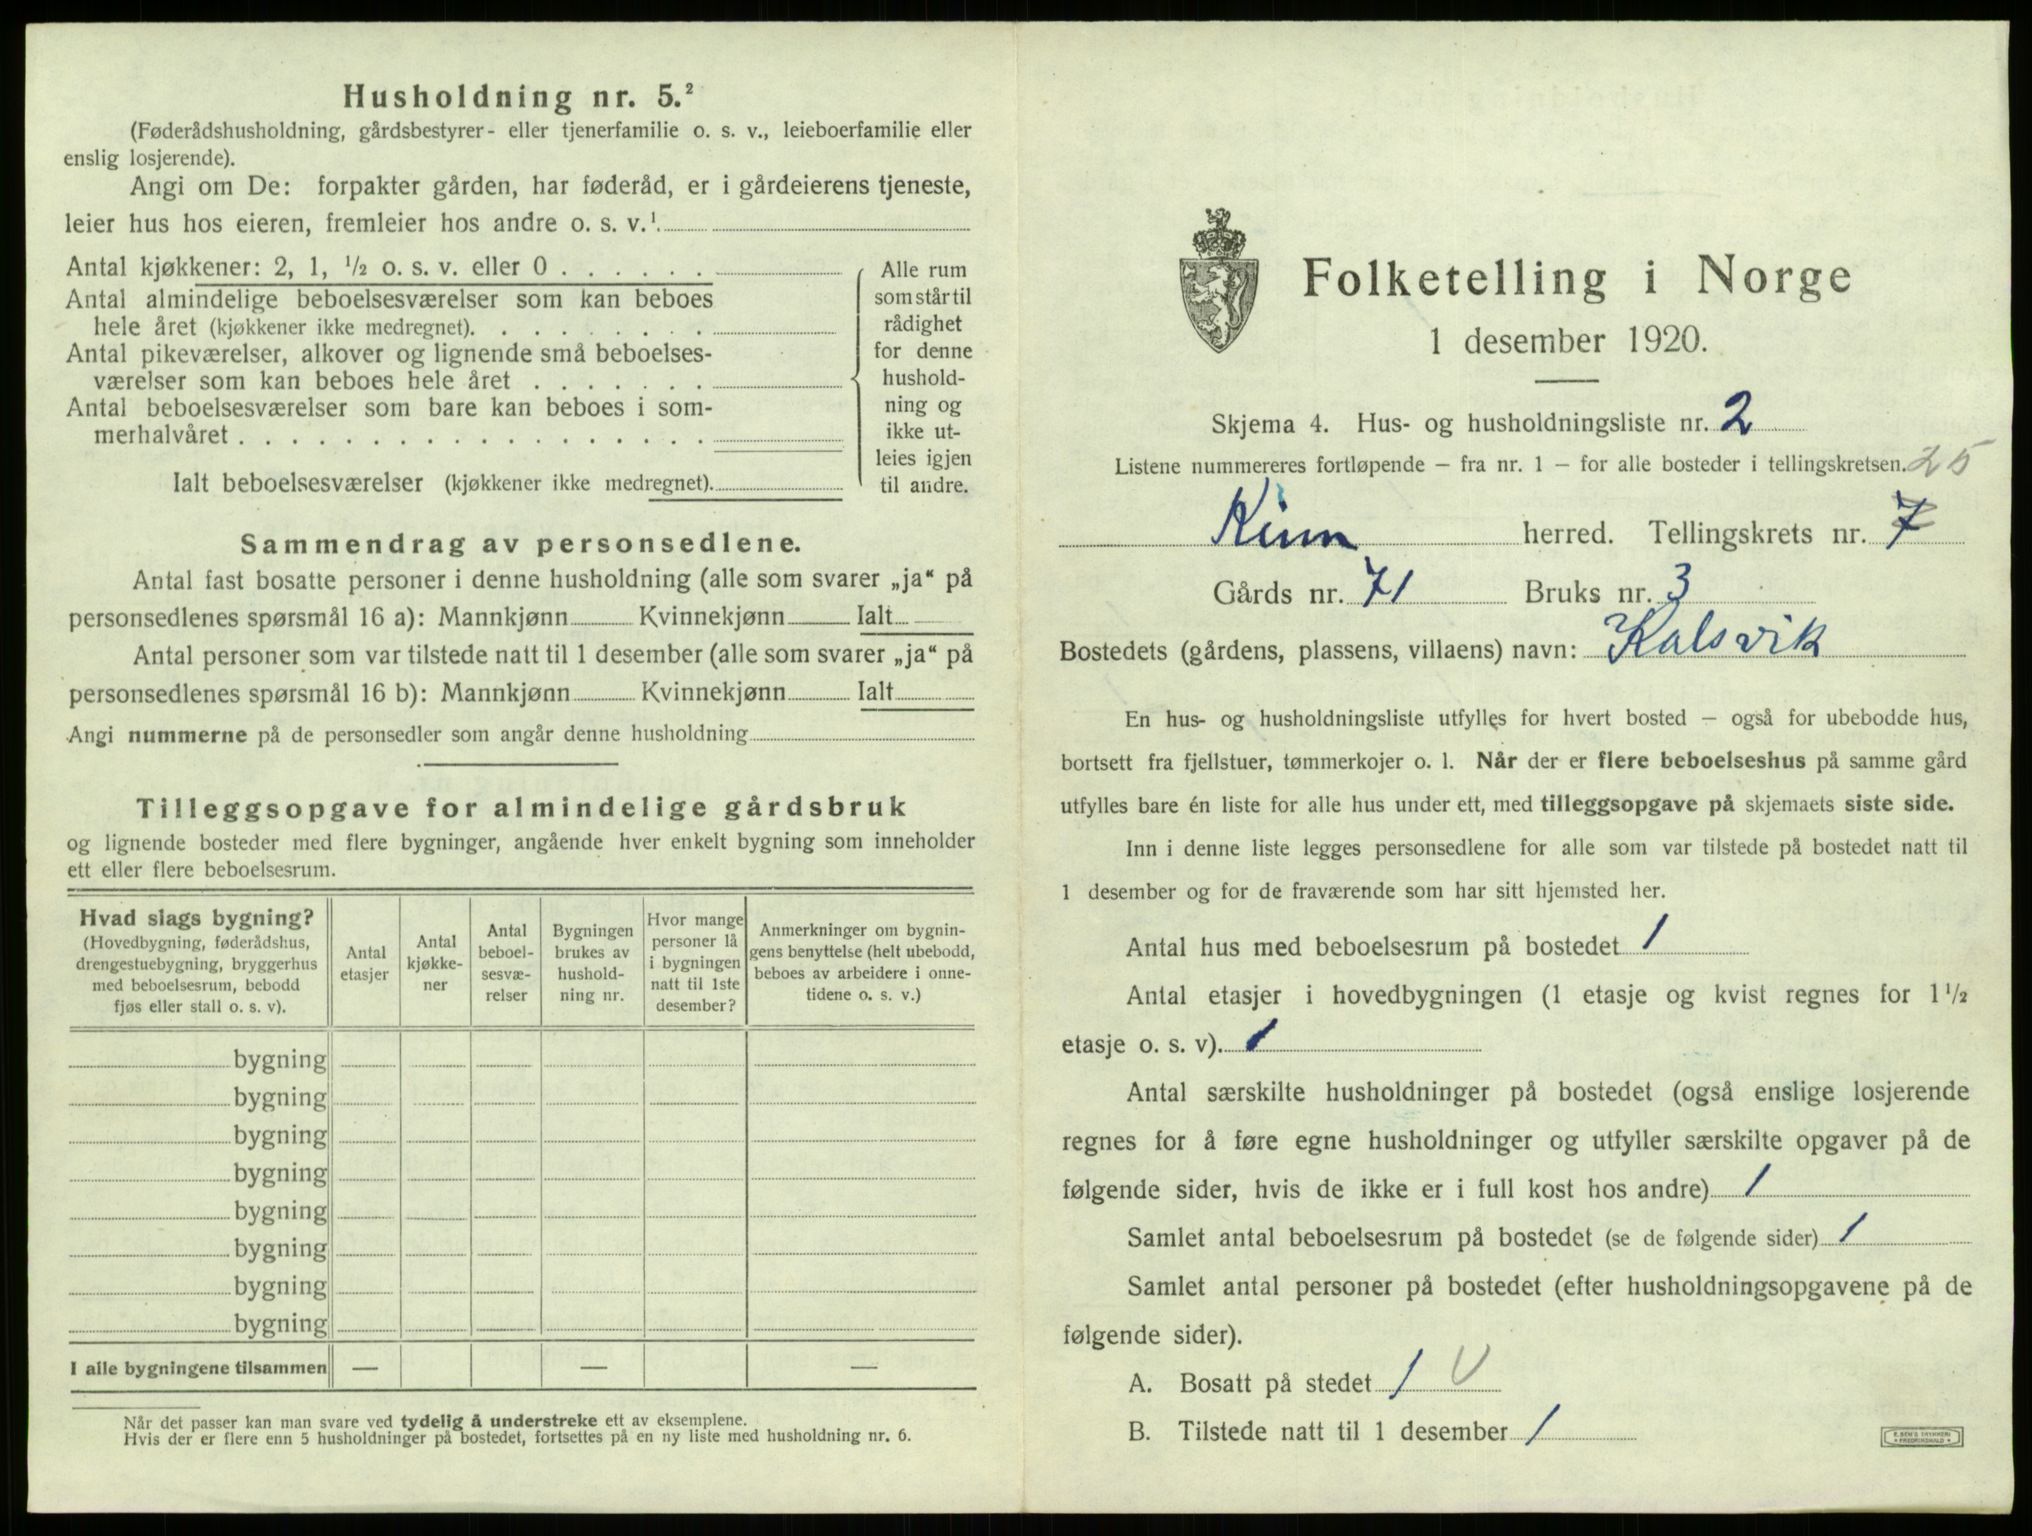 Husholdning nr. 5.²
(Føderådshusholdning, gårdsbestyrer- eller tjenerfamilie o. s. v., leieboerfamilie eller
enslig losjerende).
Angi om De: forpakter gården, har føderåd, er i gårdeierens tjeneste,
leier hus hos eieren, fremleier hos andre o. s. v.¹
Antal kjøkkener: 2, 1, ½ o. s. v. eller 0 . . . . . .
Antal almindelige beboelsesværelser som kan beboes
hele året (kjøkkener ikke medregnet). . . . . . . . .
Antal pikeværelser, alkover og lignende små beboelses-
værelser som kan beboes hele året . . . . . . .
Antal beboelsesværelser som bare kan beboes i som-
merhalvåret . . . . . . . . . . . . . . . . . .
Ialt beboelsesværelser (kjøkkener ikke medregnet).
Alle rum
som står til
rådighet
for denne
hushold-
ning og
ikke ut-
leies igjen
til andre.
Sammendrag av personsedlene.
Antal fast bosatte personer i denne husholdning (alle som svarer „ja“ på
personsedlenes spørsmål 16 a): Mannkjønn Kvinnekjønn Ialt
Antal personer som var tilstede natt til 1 desember (alle som svarer „ja“ på
personsedlenes spørsmål 16 b): Mannkjønn Kvinnekjønn Ialt
Angi nummerne på de personsedler som angår denne husholdning
Tilleggsopgave for almindelige gårdsbruk
og lignende bosteder med flere bygninger, angående hver enkelt bygning som inneholder
ett eller flere beboelsesrum.
Hvad slags bygning?
(Hovedbygning, føderådshus,
drengestuebygning, bryggerhus
med beboelsesrum, bebodd
fjøs eller stall o. s. v).
Antal
etasjer
Antal
kjøkke-
ner
Antal
beboel-
sesvæ-
relser
Bygningen
brukes av
hushold-
ning nr.
Hvor mange
personer lå
i bygningen
natt til 1ste
desember?
Anmerkninger om bygnin-
gens benyttelse (helt ubebodd,
beboes av arbeidere i onne-
tidene o. s. v.)
bygning
bygning
bygning
bygning
bygning
bygning
bygning
bygning
I alle bygningene tilsammen — — —
Når det passer kan man svare ved tydelig å understreke ett av eksemplene.
Hvis der er flere enn 5 husholdninger på bostedet, fortsettes på en ny liste med husholdning nr. 6.
Folketelling i Norge
1 desember 1920.
Skjema 4. Hus- og husholdningsliste nr. 2
Listene nummereres fortløpende – fra nr. 1 – for alle bosteder i tellingskretsen. 25
Kinn herred. Tellingskrets nr. 7
Gårds nr. 71 Bruks nr. 3
Bostedets (gårdens, plassens, villaens) navn: Kalsvik
En hus- og husholdningsliste utfylles for hvert bosted – også for ubebodde hus,
bortsett fra fjellstuer, tømmerkojer o. l. Når der er flere beboelseshus på samme gård
utfylles bare én liste for alle hus under ett, med tilleggsopgave på skjemaets siste side.
Inn i denne liste legges personsedlene for alle som var tilstede på bostedet natt til
1 desember og for de fraværende som har sitt hjemsted her.
Antal hus med beboelsesrum på bostedet 1
Antal etasjer i hovedbygningen (1 etasje og kvist regnes for 1½
etasje o. s. v). 1
Antal særskilte husholdninger på bostedet (også enslige losjerende
regnes for å føre egne husholdninger og utfyller særskilte opgaver på de
følgende sider, hvis de ikke er i full kost hos andre) 1
Samlet antal beboelsesrum på bostedet (se de følgende sider) 1
Samlet antal personer på bostedet (efter husholdningsopgavene på de
følgende sider).
A. Bosatt på stedet 1
B. Tilstede natt til 1 desember 1